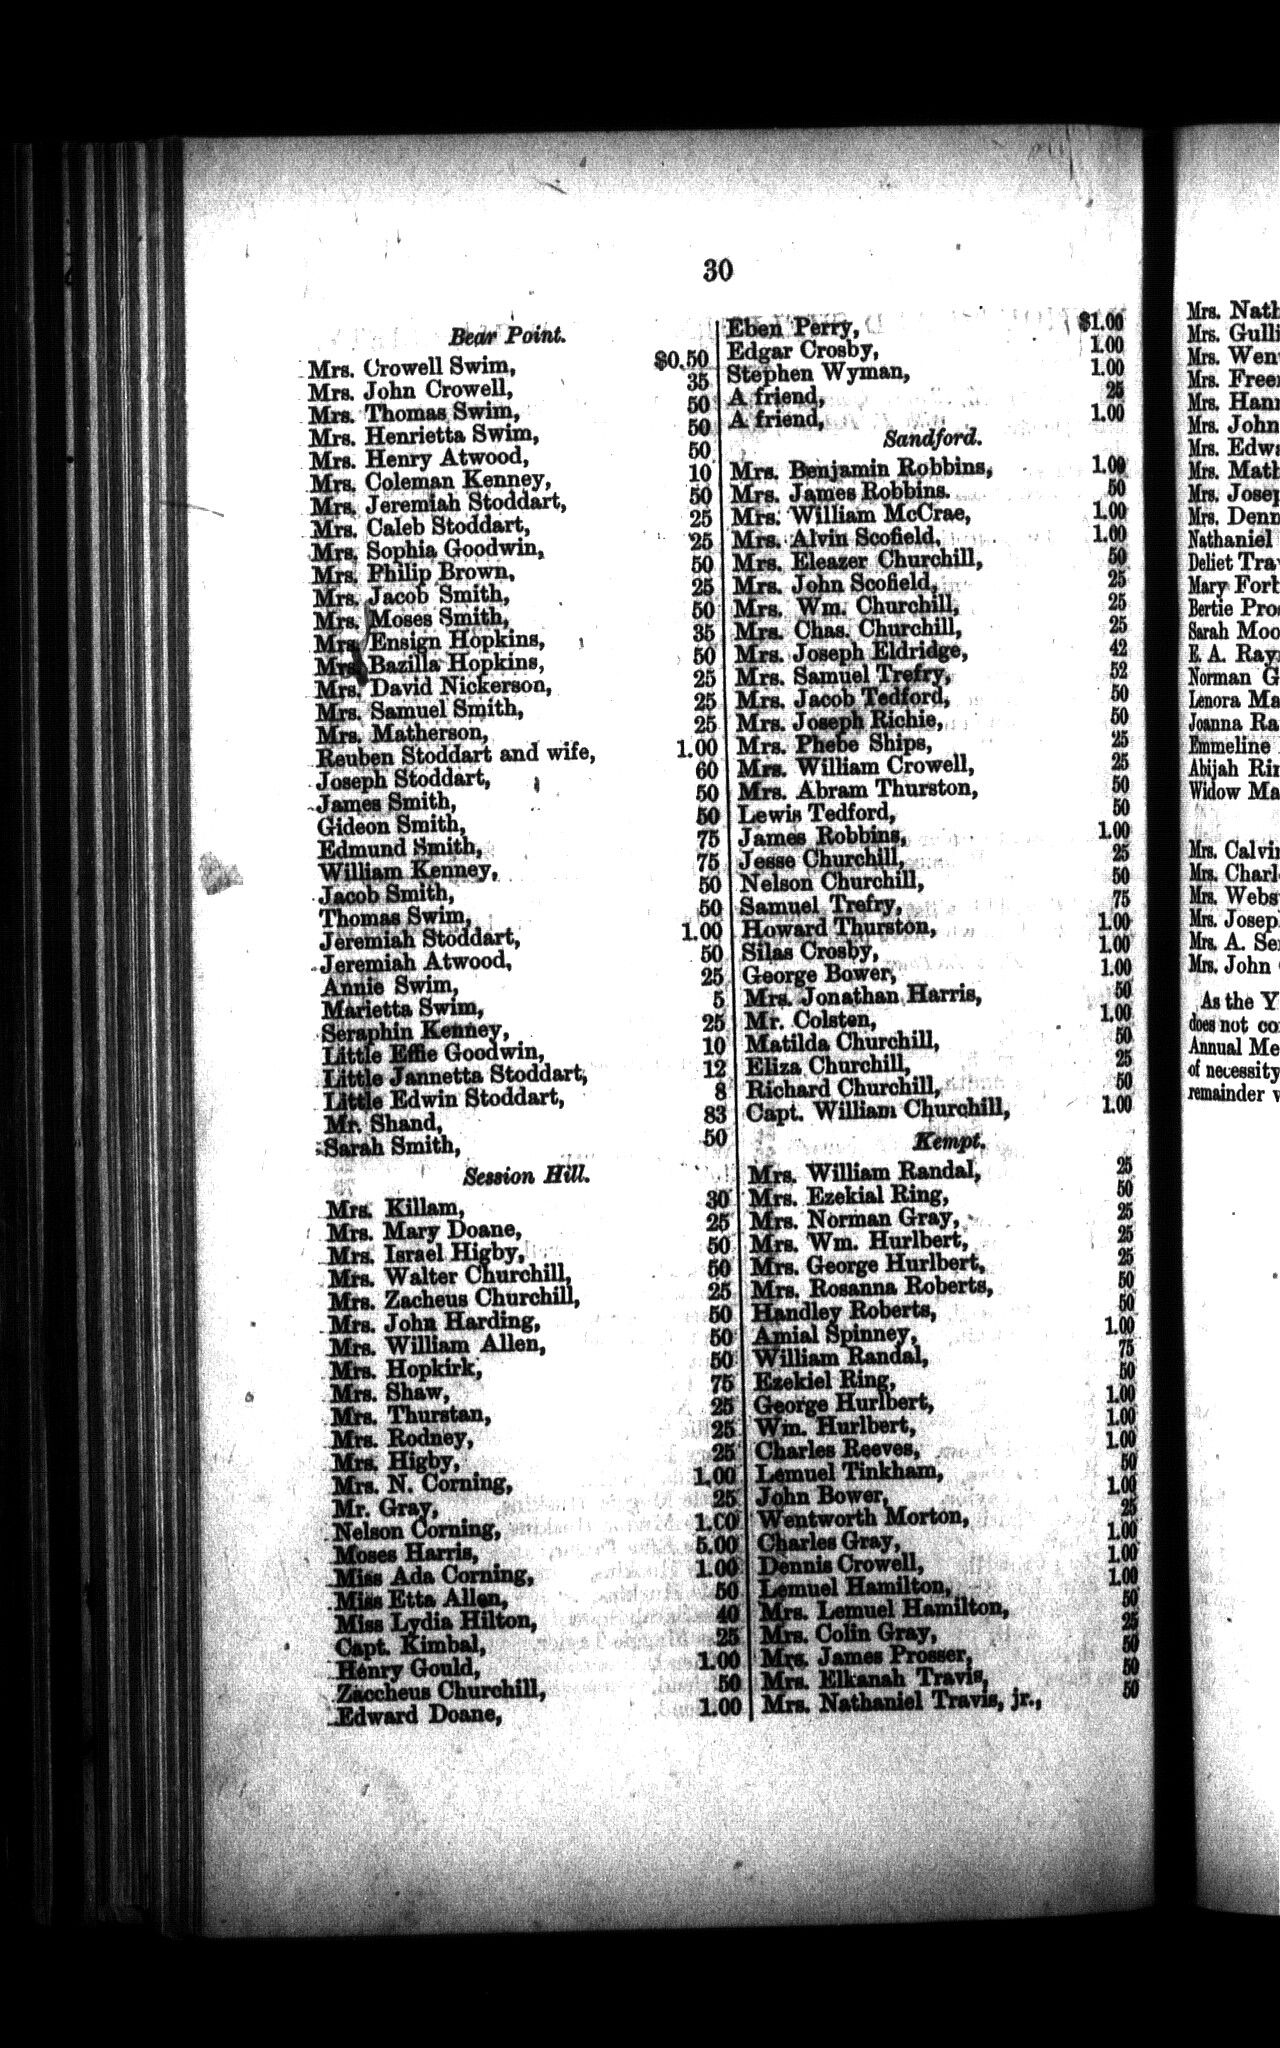 30
Bear Point.
Mrs. Crowell Swim, $0.50
Mrs. John Crowell, 35
Mrs. Thomas Swim, 50
Mrs. Henrietta Swim, 50
Mrs. Henry Atwood, 50
Mrs. Coleman Kenney, 10
Mrs. Jeremiah Stoddart, 50
Mrs. Caleb Stoddart, 25
Mrs. Sophia Goodwin, 25
Mrs. Philip Brown, 50
Mrs. Jacob Smith, 25
Mrs. Moses Smith, 50
Mrs. Ensign Hopkins, 35
Mrs. Bazilla Hopkins, 50
Mrs. David Nickerson, 25
Mrs. Samuel Smith, 25
Mrs. Matherson, 25
Reuben Stoddart and wife, 1.00
Joseph Stoddart, 60
James Smith, 50
Gideon Smith, 50
Edmund Smith, 75
William Kenney, 75
Jacob Smith, 50
Thomas Swim, 50
Jeremiah Stoddart, 1.00
Jeremiah Atwood, 50
Annie Swim, 25
Marietta Swim, 5
Seraphin Kenney, 25
Little Effie Goodwin, 10
Little Jannetta Stoddart, 12
Little Edwin Stoddart, 8
Mr. Shand, 83
Sarah Smith, 50
Session Hill.
Mrs. Killam, 30
Mrs. Mary Doane, 25
Mrs. Israel Higby, 50
Mrs. Walter Churchill, 50
Mrs. Zacheus Churchill, 25
Mrs. John Harding, 50
Mrs. William Allen, 50
Mrs. Hopkirk, 50
Mrs. Shaw, 75
Mrs. Thurstan, 25
Mrs. Rodney, 25
Mrs. Higby, 25
Mrs. N. Corning, 1.00
Mr. Gray, 25
Nelson Corning, 1.00
Moses Harris, 5.00
Miss Ada Corning, 1.00
Miss Etta Allen, 50
Miss Lydia Hilton, 40
Capt. Kimbal, 25
Henry Gould, 1.00
Zaccheus Churchill, 50
Edward Doane, 1.00
Eben Perry, $1.00
Edgar Crosby, 1.00
Stephen Wyman, 1.00
A friend, 25
A friend, 1.00
Sandford.
Mrs. Benjamin Robbins, 1.00
Mrs. James Robbins. 50
Mrs. William McCrae, 1.00
Mrs. Alvin Scofield, 1.00
Mrs. Eleazer Churchill, 50
Mrs. John Scofield, 25
Mrs. Wm. Churchill, 25
Mrs. Chas. Churchill, 25
Mrs. Joseph Eldridge, 42
Mrs. Samuel Trefry, 52
Mrs. Jacob Tedford, 50
Mrs. Joseph Richie, 50
Mrs. Phebe Ships, 25
Mrs. William Crowell, 25
Mrs. Abram Thurston, 50
Lewis Tedford, 50
James Robbins, 1.00
Jesse Churchill, 25
Nelson Churchill, 50
Samuel Trefry, 75
Howard Thurston, 1.00
Silas Crosby, 1.00
George Bower, 1.00
Mrs. Jonathan Harris, 50
Mr. Colsten, 1.00
Matilda Churchill, 50
Eliza Churchill, 25
Richard Churchill, 50
Capt. William Churchill, 1.00
Kempt.
Mrs. William Randal, 25
Mrs. Ezekial Ring, 50
Mrs. Norman Gray, 25
Mrs. Wm. Hurlbert, 25
Mrs. George Hurlbert, 25
Mrs. Rosanna Roberts, 50
Handley Roberts, 50
Amial Spinney, 1.00
William Randal, 75
Ezekiel Ring, 50
George Hurlbert, 1.00
Wm. Hurlbert, 1.00
Charles Reeves, 1.00
Lemuel Tinkham, 50
John Bower, 1.00
Wentworth Morton, 25
Charles Gray, 1.00
Dennis Crowell, 1.00
Lemuel Hamilton, 1.00
Mrs. Lemuel Hamilton, 50
Mrs. Colin Gray, 25
Mrs. James Prosser, 50
Mrs. Elkanah Travis, 50
Mrs. Nathaniel Travis, jr., 50
Mrs. Nath
Mrs. Gulli
Mrs. Wen
Mrs. Free
Mrs. Han
Mrs. John
Mrs. Edw
Mrs. Math
Mrs. Josep
Mrs. Denn
Nathaniel
Deliet Tra
Mary Forb
Bertie Pros
Sarah Moo
E. A. Ray
Norman G
Lenora Ma
Joanna Ra
Emmeline
Abijah Rin
Widow Ma
Mrs. Calvin
Mrs. Charl
Mrs. Webs
Mrs. Josep
Mrs. A. Se
Mrs. John
As the Y
does not co
Annual Me
of necessity
remainder